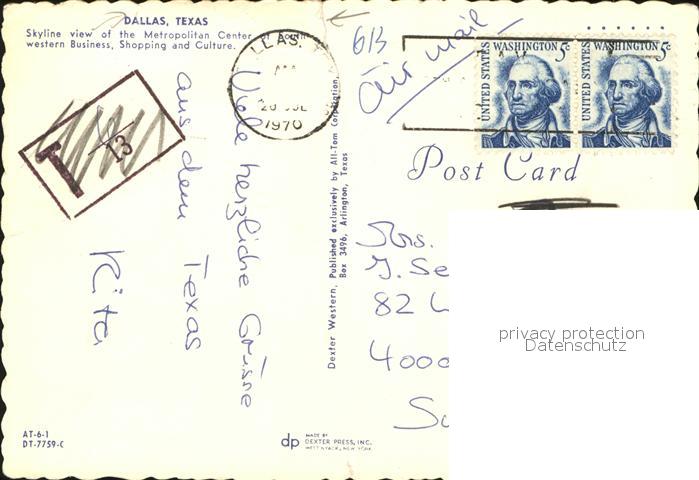 DALLAS, TEXAS
Skyline view of the Metropolitan Center of South-
western Business, Shopping and Culture.
LLAS.
20 JUL
1970
613
air mail
UNITED STATES WASHINGTON 5c
UNITED STATES WASHINGTON 5c
T
13
Viele herzliche Grüsse
aus dem Texas
Rita
Dexter Western, Published exclusively by All-Tom Corporation,
Box 3496, Arlington, Texas
Post Card
Mrs.
J. Se
82
4000
privacy protection
Datenschutz
AT-6-1
DT-7759-C
dp
MADE BY
DEXTER PRESS, INC.
WEST NYACK, NEW YORK